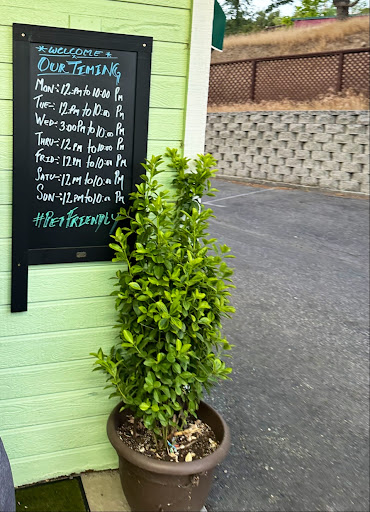 *WELCOME*
OUR TIMING
MON:- 12:PM TO 10:00 PM
TUE:- 12:PM TO 10:00 PM
WED:- 3:00PM TO 10:00 PM
THRU:- 12 PM TO 10:00 PM
FRID:- 12 PM TO 10:00 PM
SATU:- 12 PM TO 10:00 PM
SUN:- 12 PM TO 10:00 PM
#PET FRIENDLY